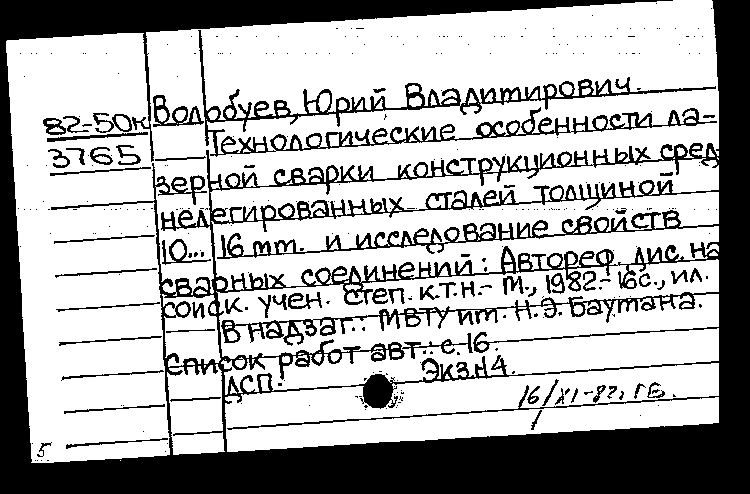 Волобуев, Юрий Владимирович.
82-50к
3765
Технологические особенности ла-
зерной сварки конструкционных сред-
нелегированных сталей толщиной
10... 16 mm. и исследование свойств
сварных соединений: Автореф. дис. на
соиск. учен. степ. к.т.н.- М., 1982.- 16с., ил.
В надзаг.: МВТУ им. Н.Э. Баумана.
Список работ авт.: с. 16.
ДСП. Экз.N4.
16/XI-82г. ГБ.
5